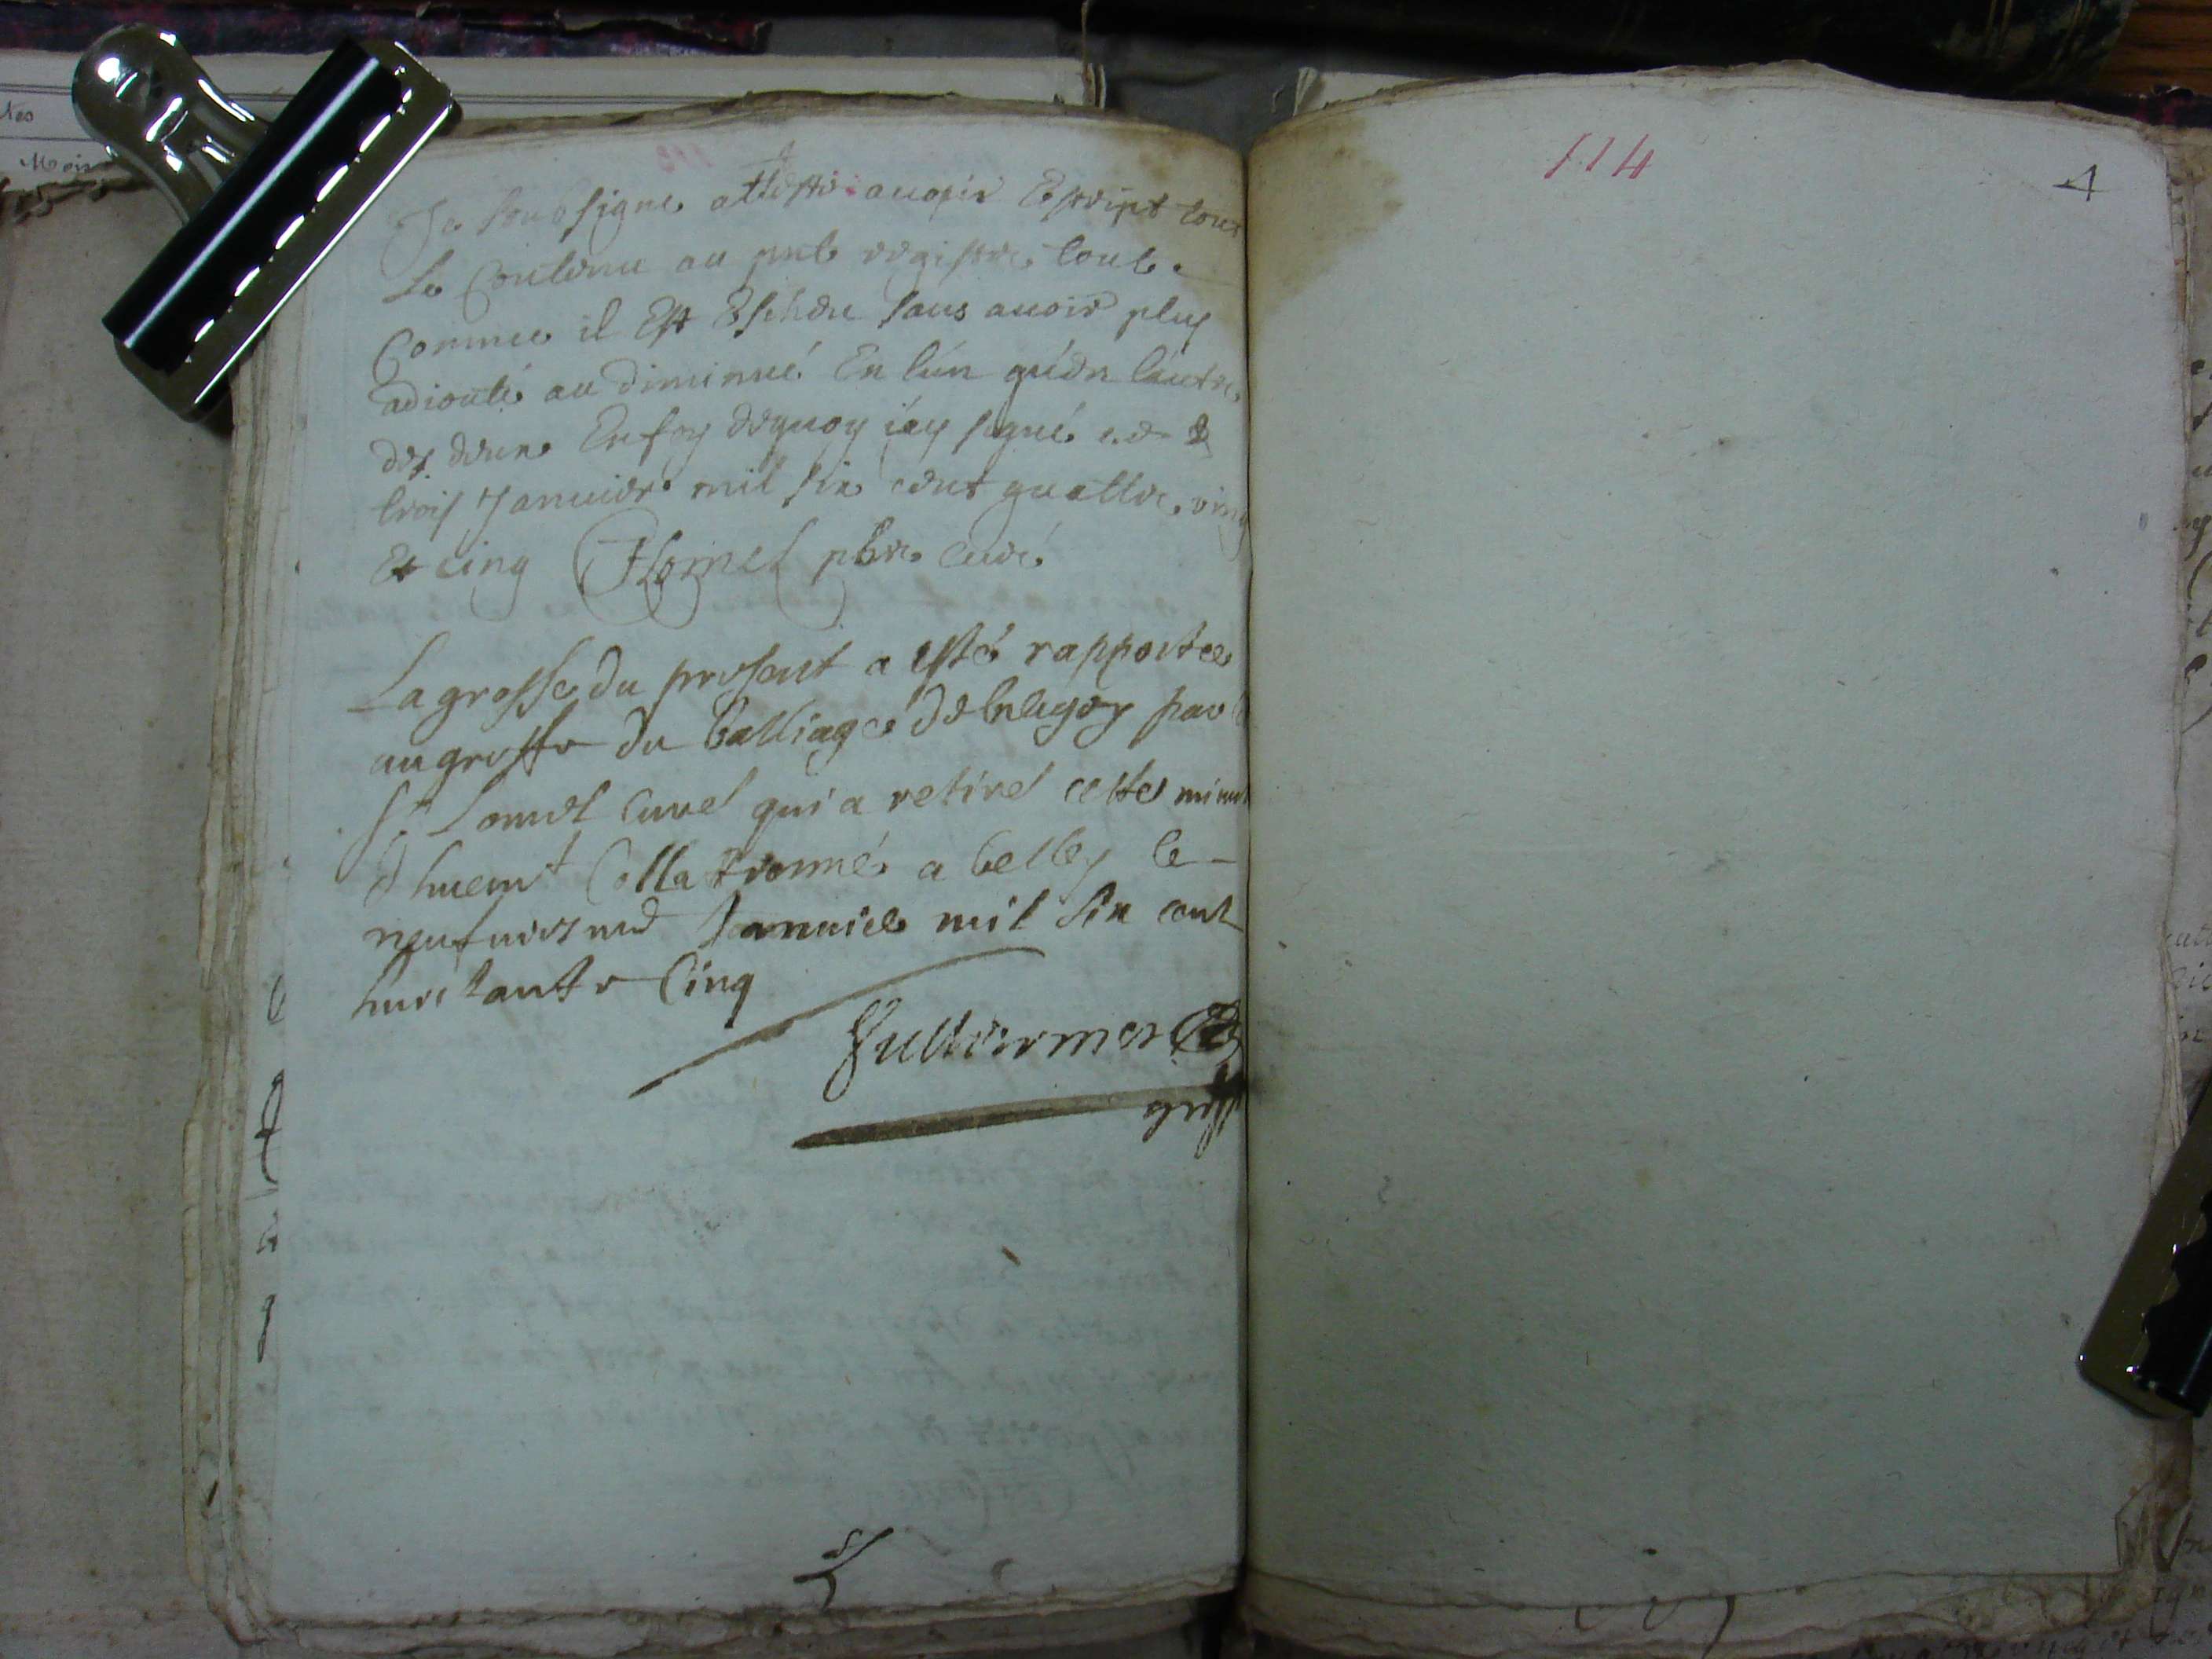 Je sousigne atteste auoir Escript tout
Le Contenu au pnt registre tout
Comme il Est Escheu sans auoir plus
adiouté au diminué En l'un qu'en l'autre
des deux En foy dequoy i'ay signé ce
trois Januier mil six cent quattre ving
Et cinq Homel pbre curé
La grosse du present a esté rapportée
au greffe du balliage de beugey par
Sr. Lomel Curel qui a retiré cette minut
d huemt Collationné a belley le
neufuiesme Januier mil six cent
huictante Cinq
Vuillermet
greff
114
4